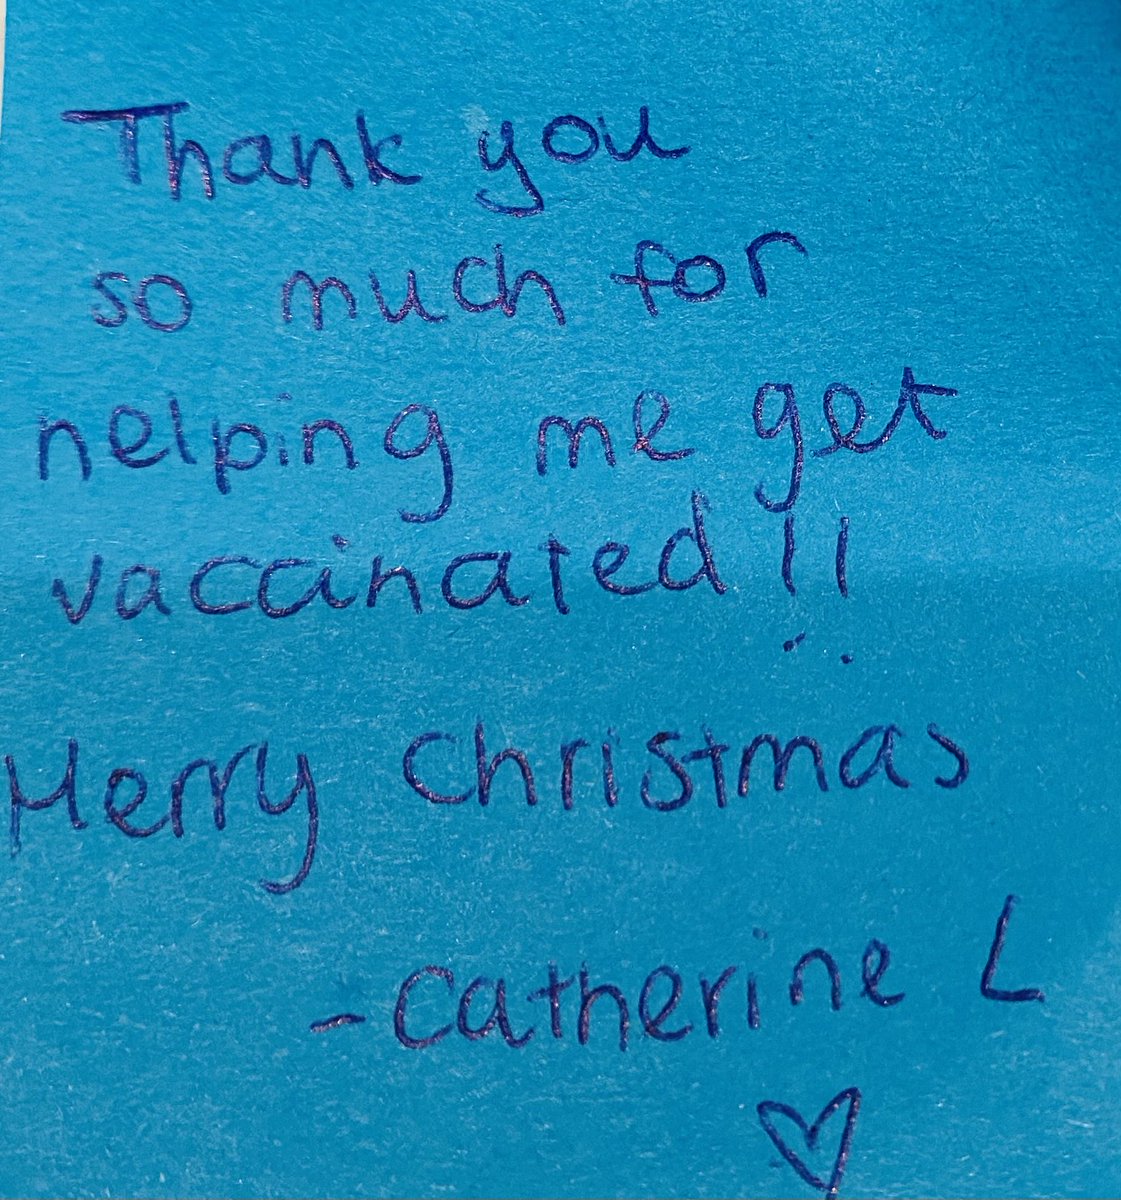 Thank you
so much for
helping me get
vaccinated!!
Merry Christmas
- Catherine L